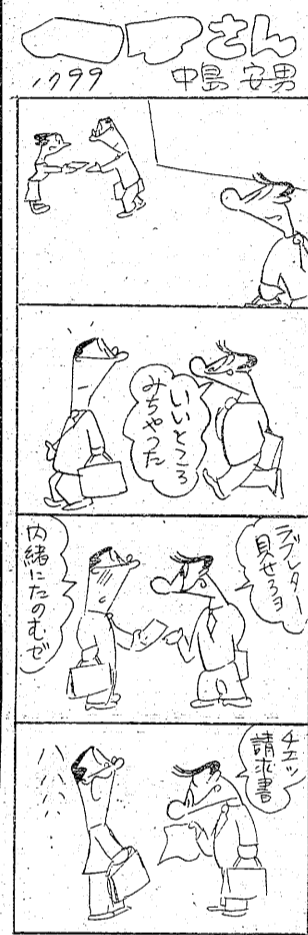 さん
1799
中島 安男
いいところ
みちゃった
ラブレター
見せろヨ
内緒にたのむぜ
チエッ
請求書